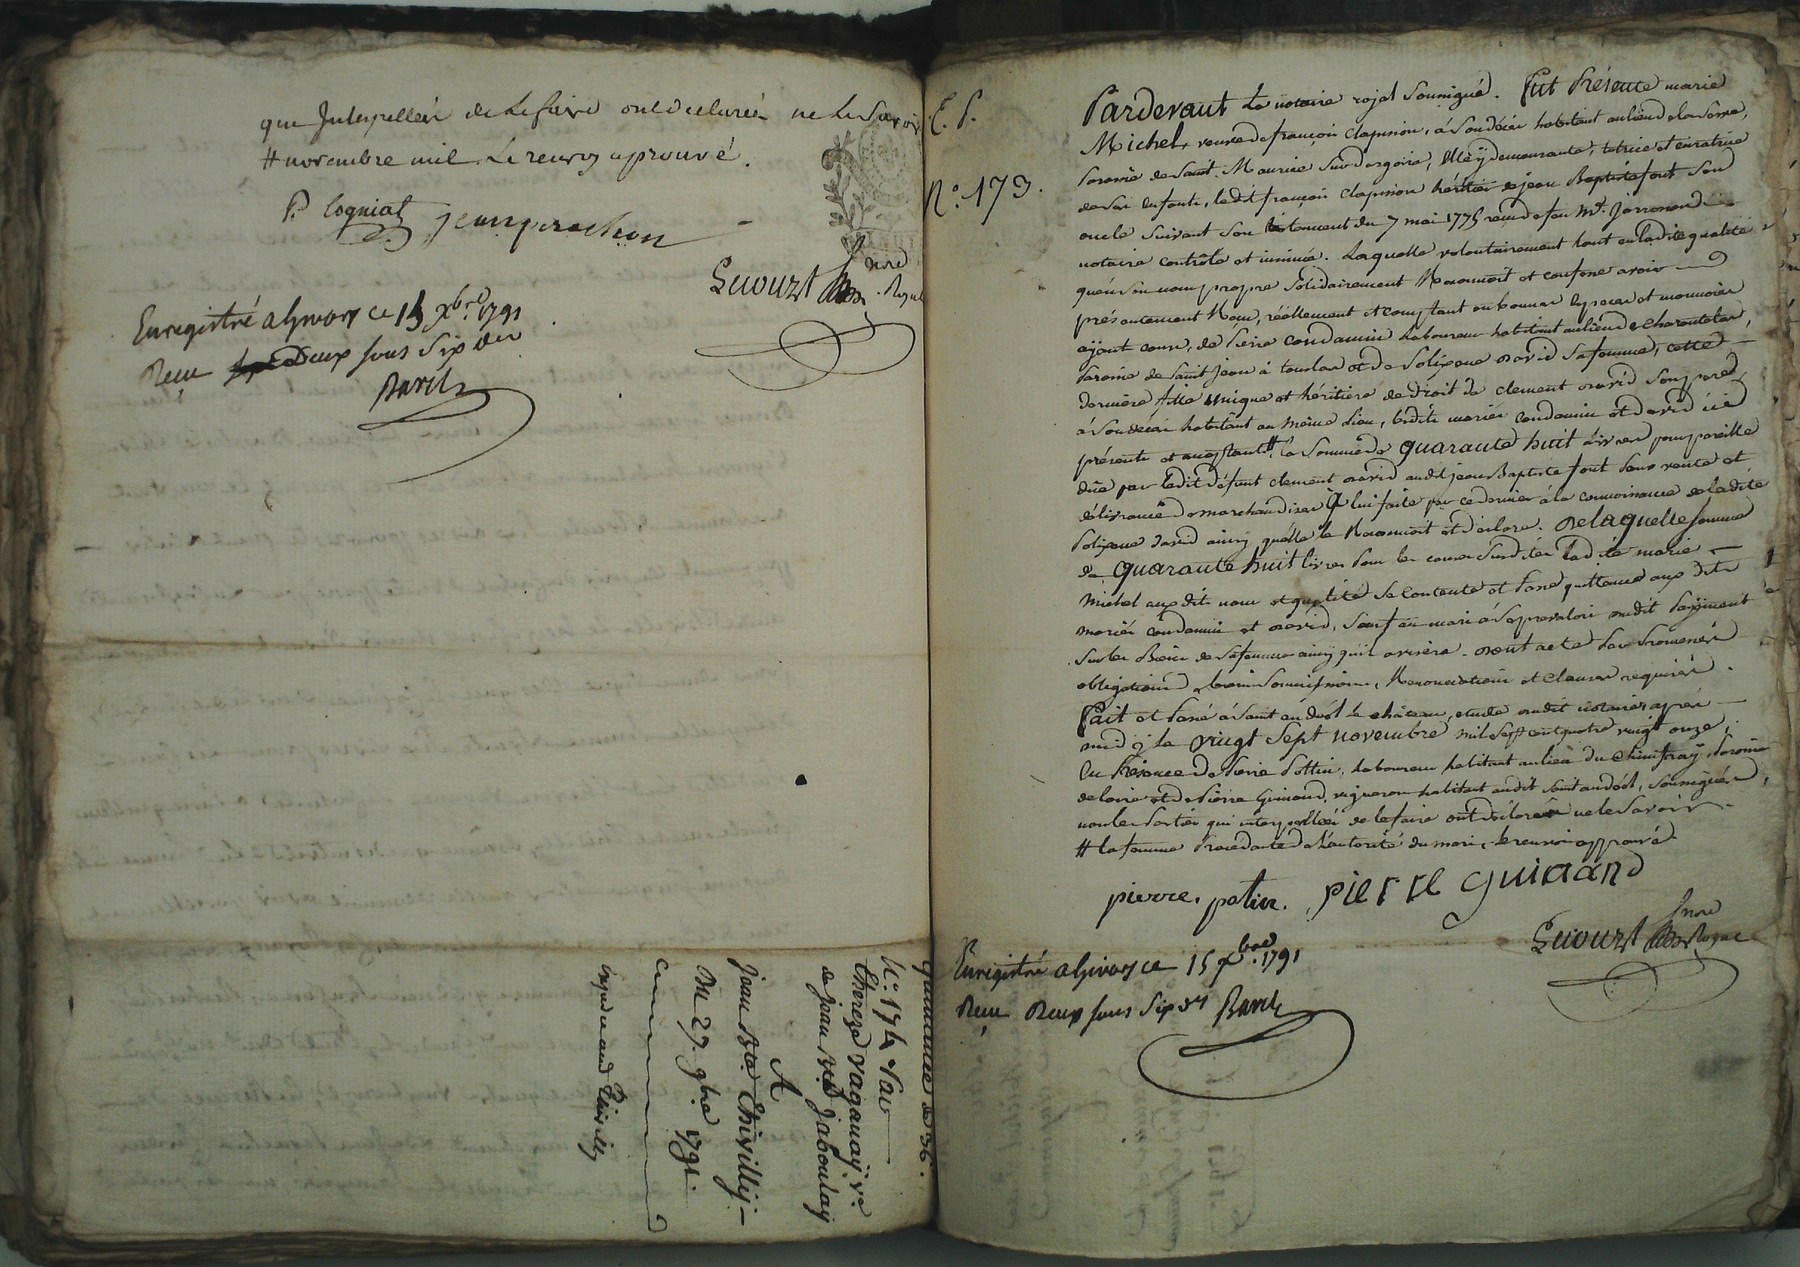 que Interpellés de Le faire ont declarés ne Le Savoir
# novembre mil. Le renvoy aprouvé.
P. Cogniat jean prachon
Enregistré a Givors ce 15 Xbre 1791
Reçu Deux sous Six drs
Barel
quittance de 36.
N.º 174 Par
Thereze Vaganaÿ ve
de jean Bte Jaboulay
A
jean Bte Chivilly
Du 27. 9bre 1791.
E. P.
N.º 173.
Pardevant Le notaire royal Soussigné. Fut Présente marie
Michel, veuve de françois Clapisson, à Son décès habitant au lieu de la
Paroisse de Saint Maurice Sur dargoire, Elle ÿ demeurante, tutrice et curatrice
de Ses Enfants, ledit françois Clapisson héritier de jean Baptiste font Son
oncle Suivant Son testament du 7 mai 1775 reçu de feu Mt.
notaire contrôlé et insinué. Laquelle volontairement tant en ladite qualité
qu'en Son nom propre Solidairement Reconnoit et confesse avoir
présentement Reçu, réellement et comptant en bonnes Espèces et monnoies
aÿant cours, de Pierre Condamin Laboureur habitant au lieu de
Paroisse de Saint Jean à touslas et de Polixene David Sa femme, cette
dernière fille unique et héritière de droit de Clement David Son père,
à Son décès habitant au même lieu, lesdits mariés Condamin et David ici
présents et acceptants #, la Somme de quarante huit Livres pour pareille
dûe par ledit défunt Clement David audit jean Baptiste font Sous vente et
délivrance de marchandises à lui faite par ce dernier à la connoissance de ladite
Polixene David ainsy qu'elle le Reconnoit et déclare. De laquelle Somme
de quarante huit livres Pour les causes Susdites ladite marie
Michel auxdits nom et qualité Se Contente et Passe quittance auxdits
mariés Condamin et David, Sauf au mari à Se prévaloir dudit Payement
Sur les Biens de Sa femme ainsy qu'il avisera. Dont acte Par Promesses
obligations de biens Soumissions, Renonciations et Clauses requises.
Fait et Passé à Saint andéol le château, étude dudit notaire après
midÿ le vingt Sept novembre mil Sept cent quatre vingt onze,
En Présence de Pierre Pottin, laboureur habitant au lieu du Paroisse
de loire et de Pierre Guinand, vigneron habitant audit Saint andéol, Soussignés,
non les Parties qui interpellées de le faire ont déclaré ne le Savoir.
# la femme Procédante de l'autorité du mari, le renvoi approuvé.
pierre. potin. pierre guinand
Enregistré a Givors ce 15 Xbre. 1791
Reçu Deux sous Six drs Barel